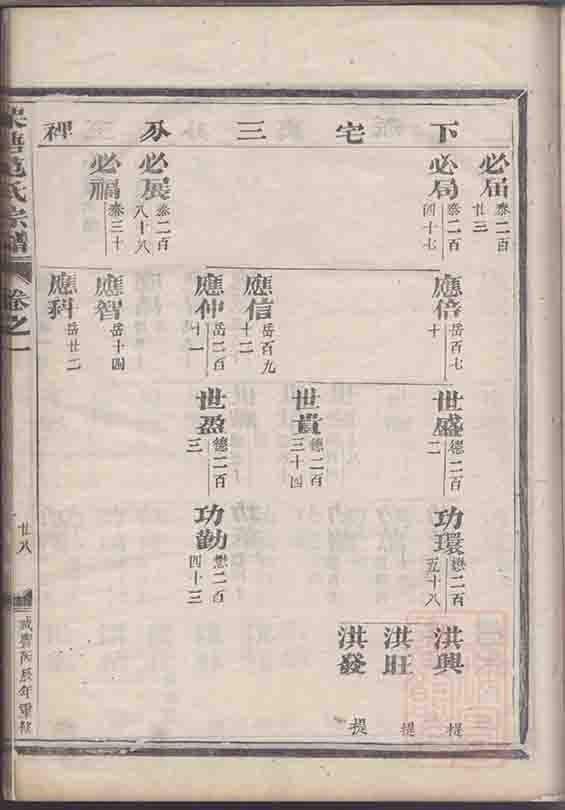 下宅三分裡
必届 泰二百廿三
必局 泰二百四十七
必展 泰二百八十八
必禑 泰三十
應倍 岳百七十
應信 岳百九十二
應仲 岳二百十一
應智 岳十四
應科 岳廿二
世盛 德二百二
世貴 德二百三十四
世盈 德二百三
功環 懋二百五十八
功勸 懋二百四十三
洪興 提
洪旺 提
洪發 提
范氏宗譜
卷之一
廿八
咸豐丙辰年重修